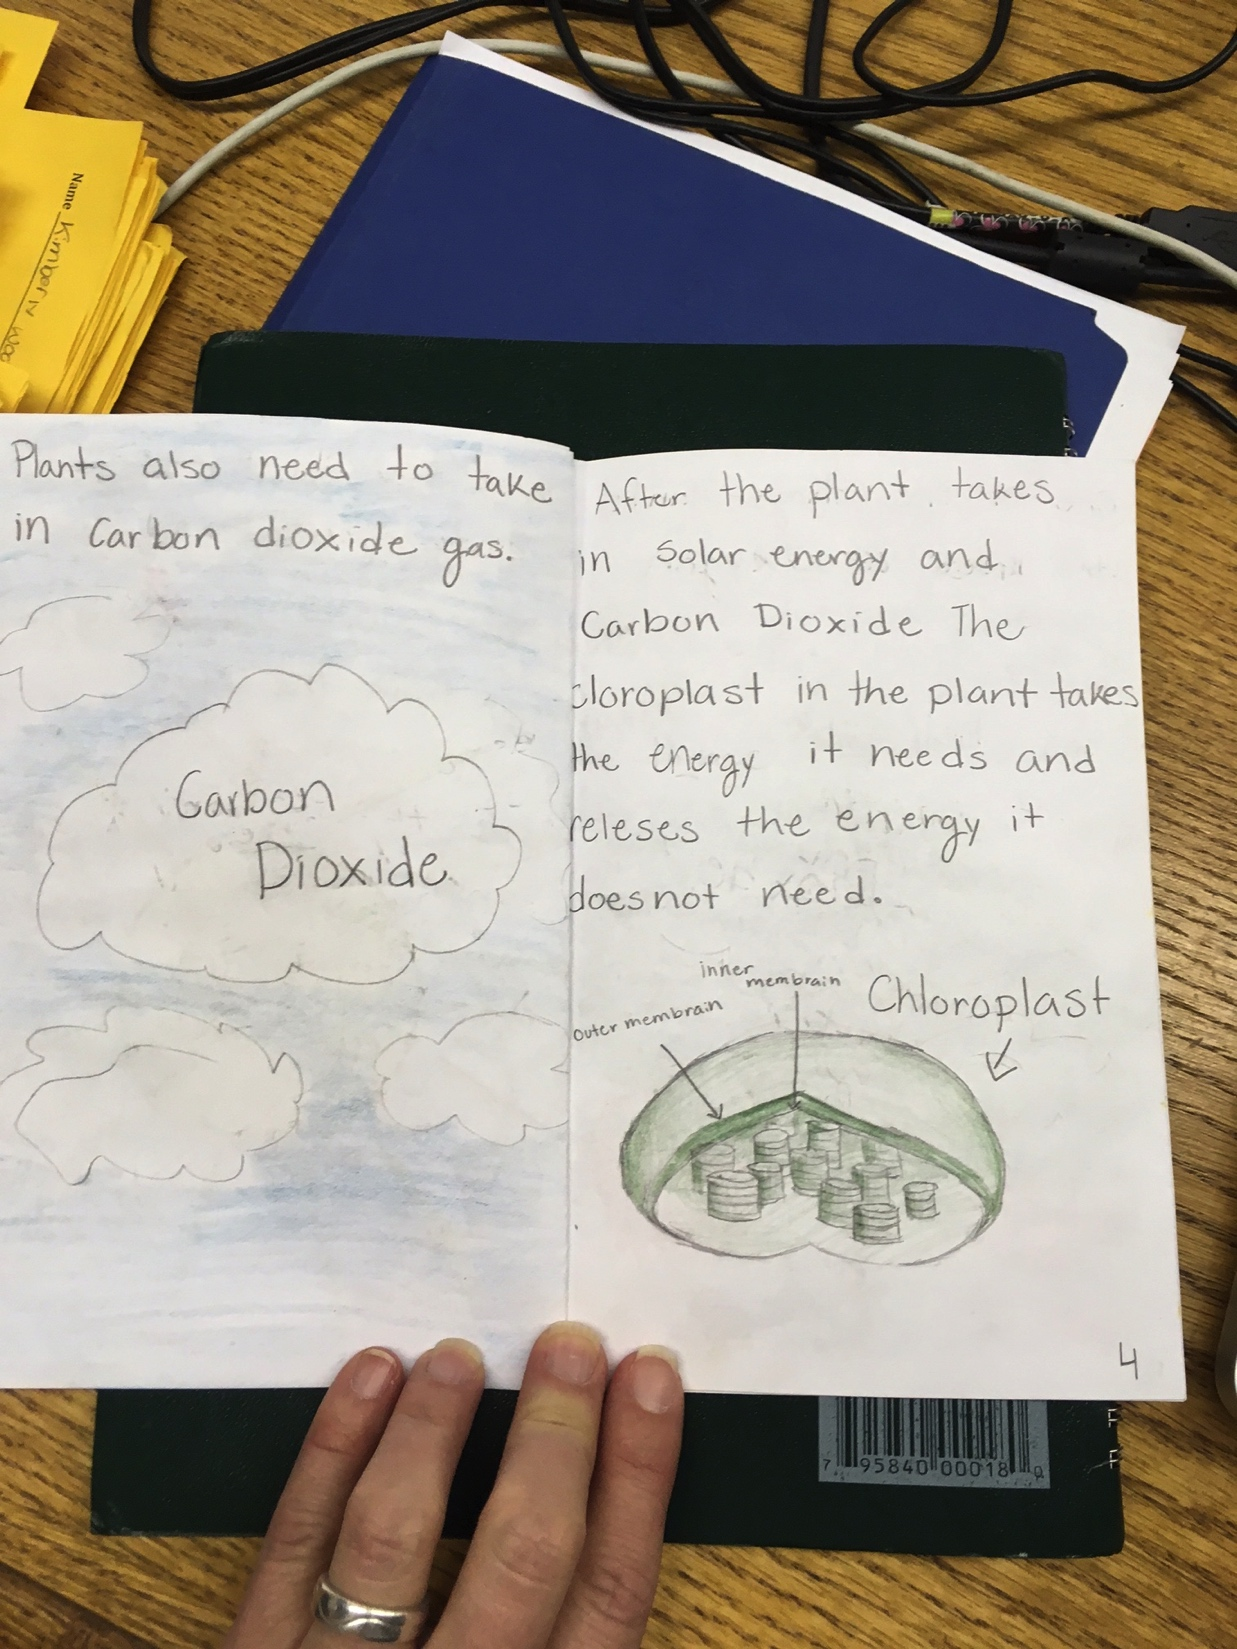 Name Kimberly
Plants also need to take
in Carbon dioxide gas.
Carbon
Dioxide
After the plant takes
in solar energy and
Carbon Dioxide The
cloroplast in the plant takes
the energy it needs and
releses the energy it
does not need.
inner
membrain
outer membrain
Chloroplast
4
7 95840 00018 0